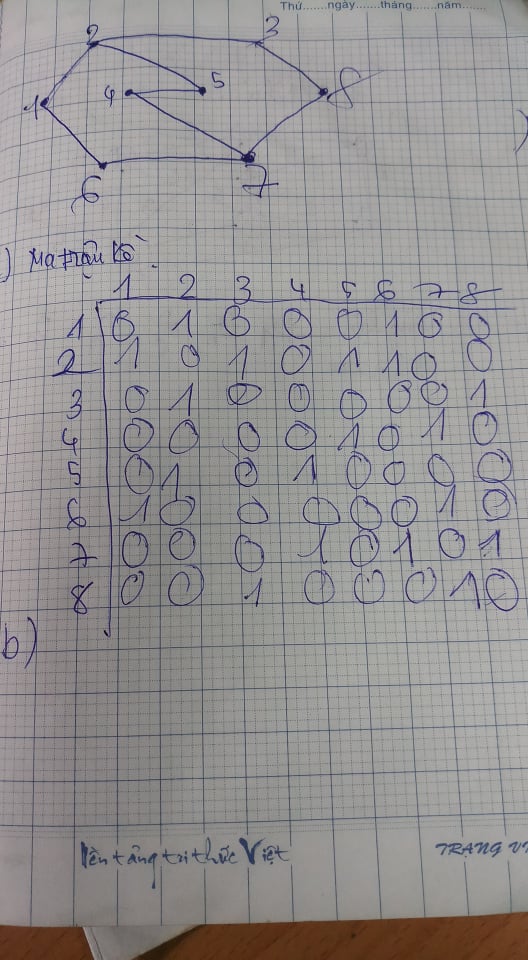 Thứ.......ngày.......tháng.......năm.......
2 3
4 5 8
1
6 7
) Ma trận kề
1 2 3 4 5 6 7 8
1 0 1 0 0 0 1 0 0
2 1 0 1 0 1 1 0 0
3 0 1 0 0 0 0 0 1
4 0 0 0 0 1 0 1 0
5 0 1 0 1 0 0 0 0
6 1 0 0 0 0 0 1 0
7 0 0 0 1 0 1 0 1
8 0 0 1 0 0 0 1 0
b)
Nền tảng tri thức Việt TRANG